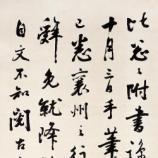 比忽忽附書
十月三日手筆
已 襄州之行
辭免就降
自文不知閣